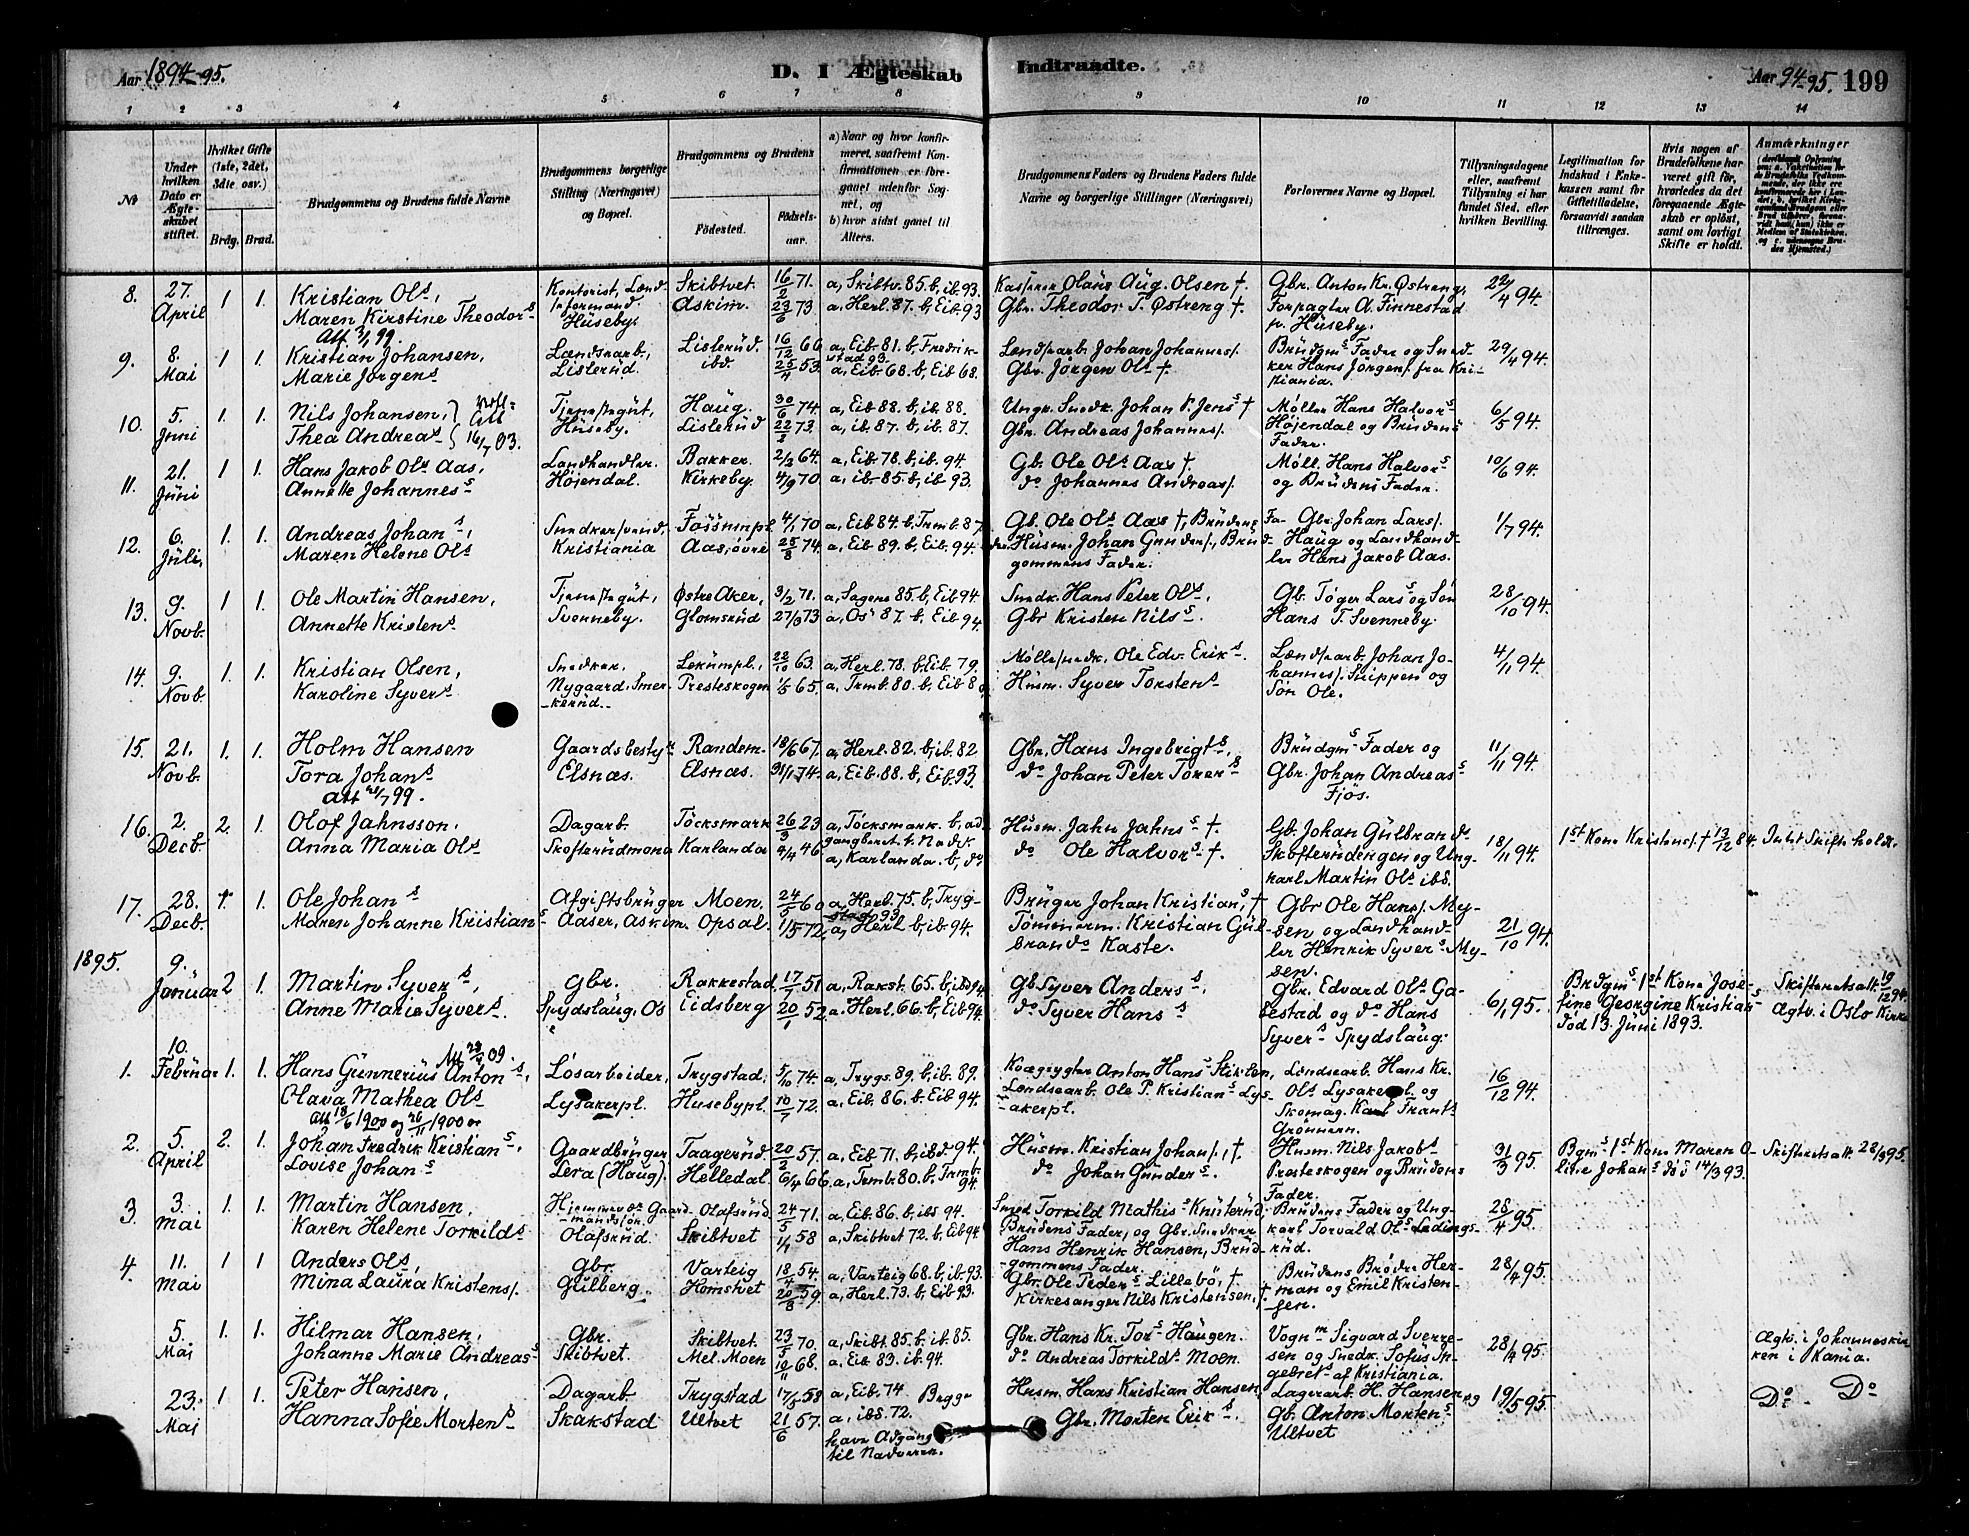 Aar 1894-95.
D. I Ægteskab Indtraadte.
Aar 94-95. 199
1 2 3 4 5 6 7 8 9 10 11 12 13 14
№
Under hvilken Dato er Ægteskabet stiftet.
Hvilket Gifte (1ste, 2det, 3die osv.)
Brdg. Brud.
Brudgommens og Brudens fulde Navne
Brudgommens borgerlige Stilling (Næringsvei) og Bopæl.
Brudgommens og Brudens
Fødested.
Fødselsaar.
a) Naar og hvor konfirmeret, saafremt Konfirmationen er foregaaet udenfor Sognet, og
b) hvor sidst gaaet til Alters.
Brudgommens Faders og Brudens Faders fulde Navne og borgerlige Stillinger (Næringsvei)
Forlovernes Navne og Bopæl.
Tillysningsdagene eller, saafremt Tillysning ei har fundet Sted, efter hvilken Bevilling.
Legitimation for Indskud i Enkekassen samt for Giftetilladelse, forsaavidt saadan tiltrænges.
Hvis nogen af Brudefolkene har været gift før, hvorledes da det foregaaende Ægteskab er opløst, samt om lovligt Skifte er holdt.
Anmærkninger
8. 27. April 1 1. Kristian Ols, Kontorist, Lænd. Skibtvet. 16/2 71. a, Skibtv. 85. b, ib. 93. Olaus Aug. Olsen †. Gbr. Anton Kr. Østreng, 22/4 94.
Maren Kirstine Theodors Huseby. Askim. 23/6 73 a. Herl. 87. b, Eib 93 Gbr. Theodor T. Østreng †. Forpagter A. Finnestad p. Huseby.
Att. 3/1 99.
9. 8. Mai 1 1 Kristian Johansen, Lændsarb., Lislerud. 16/12 66 a, Eib. 81. b, Fredrikstad 93. Lændsarb. Johan Johannes. Brudgms Fader og Snedker Hans Jørgens. fra Kristiania. 29/4 94.
Marie Jørgens Lislerud. ibd. 25/4 53. a. Eib. 68. b, Eib 68. Gbr. Jørgen Ols †.
10. 5. Juni 1. 1. Nils Johansen, Tjenestegut, Haug. 30/6 74. a, Eib 88. b, ib. 88. Ungk. Snedk. Johan P. Jens † Møller Hans Halvors 6/5 94.
Thea Andreas Att 16/7 03. Huseby. Lislerud 22/2 73. a, ib. 87. b, ib. 87. Gbr. Andreas Johannes. Højendal og Brudens Fader.
11. 21. Juni 1 1. Hans Jakob Ols Aas, Landhandler. Bakker. 2/3 64. a, Eib. 78. b, ib. 94. Gb. Ole Ols Aas †. Møll. Hans Halvors 10/6 94.
Annette Johannes Højendal. Kirkeby. 4/9 70 a, ib. 85. b, ib. 93. do Johannes Andreas. og Brudens Fader.
12. 6. Juli, 1. 1. Andreas Johans, Snedkersvend, Fossumpl. 4/1 70 a, Eib 84. b, Trmb. 87. Gb. Ole Ols Aas †, Brudens Fa- Gbr. Johan Lars. 1/7 94.
Maren Helene Ols Kristiania Aas, øvre 25/8 74. a, Eib. 89. b, Eib. 94. der. Husm. Johan Gunders., Brudgommens Fader. Haug og Landhandler Hans Jakob Aas.
13. 9. Novb. 1 1. Ole Martin Hansen, Tjenestegut, Østre Aker, 3/2 71. a, Sagene 85. b, Eib 94. Snedk. Hans Peter Ols, Gb. Tøger Lars og Søn 28/10 94.
Annette Kristens. Svenneby. Glomsrud 27/9 73 a, Os 87. b, Eib 94. Gbr Kristen Nils. Hans T. Svenneby.
14. 9. Novb. 1. 1. Kristian Olsen, Snedker. Lekumpl., 22/10 63 a, Herl. 78. b, Eib. 79. Møllesnedk. Ole Edv. Eriks. Lændsarb. Johan Johannes. Skippen og Søn Ole. 4/11 94.
Karoline Syvers Nygaard, Smerkerud. Presteskogen 1/5 65. a, Trmb. 80. b, Eib 8 Husm. Syver Torstens
15. 21. Novb. 1. 1. Holm Hansen Gaardsbestyr Randem. 18/6 67. a, Herl. 82. b, ib. 82 Gbr. Hans Ingebrigts. Brudgms Fader og 11/11 94.
Tora Johans Elsnæs. Elsnæs. 31/1 74. a, Eib. 88. b, Eib. 93. do Johan Peter Torers Gbr. Johan Andreas Fjøs.
Att 21/7 99.
16. 2. Decb. 2. 1. Olof Jahnsson, Dagarb. Töcksmark 26/3 23 a, Töcksmark. b, adgangberet. t. Nadv. Husm. Jahn Jahns †. Gb. Johan Gulbrands 18/11 94. 1st Kone Kristens. † 13/12 84. Intet Skifte holdt.
Anna Maria Ols Skofterudmona Karlanda 4/4 46 a, Karlanda. b, do do Ole Halvors †. Skofterudengen og Ungkarl Martin Ols ibd.
17. 28. Decb. 1. 1. Ole Johans Afgiftsbruger Moen. 24/5 60 a, Herl. 75. b, Trygstad 93 Bruger Johan Kristian, † Gbr Ole Hans. My- 21/10 94.
Maren Johanne Kristians Aaser, Askim. Opsal. 1/5 72. a, Herl b, ib. 94. Tømmerm. Kristian Gulbrands Kaste. sen og Landhandler Henrik Syvers Mysen.
1895. 9. Januar 2 1. Martin Syvers, Gbr. Rakkestad 17/7 51 a, Rakst. 65. b, ibd 94. Gb Syver Anders, Gbr. Edvard Ols Ga- 6/1 95. Brdgms 1st Kone Jose- Skifteretsatt. 19/12 94.
Anne Marie Syvers. Spydslaug, Os Eidsberg 20/1 52. a. Herl. 66. b, Eib 94. do Syver Hans bestad og do Hans Syvers Spydslaug. fine Georgine Kristians død 13. Juni 1893. Ægtv. i Oslo Kirke
1. 10. Februar 1. 1. Hans Gunnerius Antons, Att 28/4 09. Løsarbeider, Trygstad. 5/10 74. a, Trygs. 89. b, ib. 89. Kvægrygter Anton Hans Stiklen, Lændsearb. Hans Kr. 16/12 94.
Olava Mathea Ols Lysakerpl. Husebypl. 10/7 72. a, Eib. 86. b. Eib 94. Lændsearb. Ole P. Kristians Lysakerpl. Ols Lysakerpl. og Skomag. Karl Frants Grønnern.
Att 18/6 1900 og 26/11 1900
2. 5. April 2. 1. Johan Fredrik Kristians, Gaardbruger Taagerud. 20/2 57. a, Eib 71. b, ibd. 94. Husm. Kristian Johans. † Husm. Nils Jakobs 31/3 95. Bgms 1st Kone Maren O- Skifteretsatt. 28/3 95.
Lovise Johans Lera (Haug). Helledal. 6/4 66. a, Trmb. 80. b. Trmb. 94. do Johan Gunders. Presteskogen og Brudens Fader. line Johans død 14/3 93.
3. 3. Mai 1. 1. Martin Hansen, Hjemmevær. Gaardmandssøn. Olafsrud 24/5 71. a, Eib. 86. b, ibd 94. Smed Torkild Mathis Knuterud, Brudens Fader og Ung- 28/4 95.
Karen Helene Torkilds Olafsrud. Skibtvet 1/1 58 a, Skibtvet 72. b, Eib 94 Brudens Fader, og Gbr. Snedker Hans Henrik Hansen, Brudgommens Fader. karl Torvald Ols Ledingsrud.
4. 11. Mai 1 1 Anders Ols, Gbr. Varteig 18/4 54. a, Varteig 68. b, ib. 93. Gbr. Ole Peders Lillebö, † Brudens Brødre Her- 28/4 95.
Mina Laura Kristens. Gulberg. Homstvet 20/8 59. a, Herl. 73. b, Eib 93. Kirkesanger Nils Kristensen, † man og Emil Kristensen.
5. Mai 1. 1. Hilmar Hansen, Gbr. Skibtvet. 23/5 70. a, Skibt. 85. b, ib. 85. Gbr. Hans Kr. Tors Haugen. Vognm Sigvard Sverre- 28/4 95. Ægtv. i Johanneskir-
Johanne Marie Andreas Skibtvet. Mel. Moen 10/11 68. a, Eib 83. ib. 94. do Andreas Torkilds Moen. sen og Snedk. Sofus Ingebrets af Kristiania. ken i Kania.
23. Mai 1 1. Peter Hansen, Dagarb. Trygstad 17/5 58 a, Eib. 74 Begge Husm. Hans Kristian Hansen, Lagerarb. H. Hansen og 19/5 95. Do Do
Hanna Sofie Mortens Skakstad Ultvet 21/6 57. a, ibd. 72. have Adgang til Nadveren. Gbr. Morten Eriks. Gb. Anton Mortens Ultvet